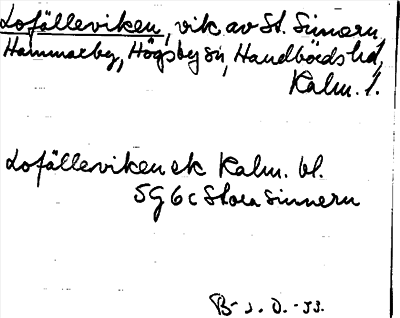 Lofälleviken, vik av St. Sinnern,
Hammarby, Högsby sn, Handbörds hd,
Kalm. l.
Lofälleviken ek Kalm. bl.
5G 6c Stora Sinnern